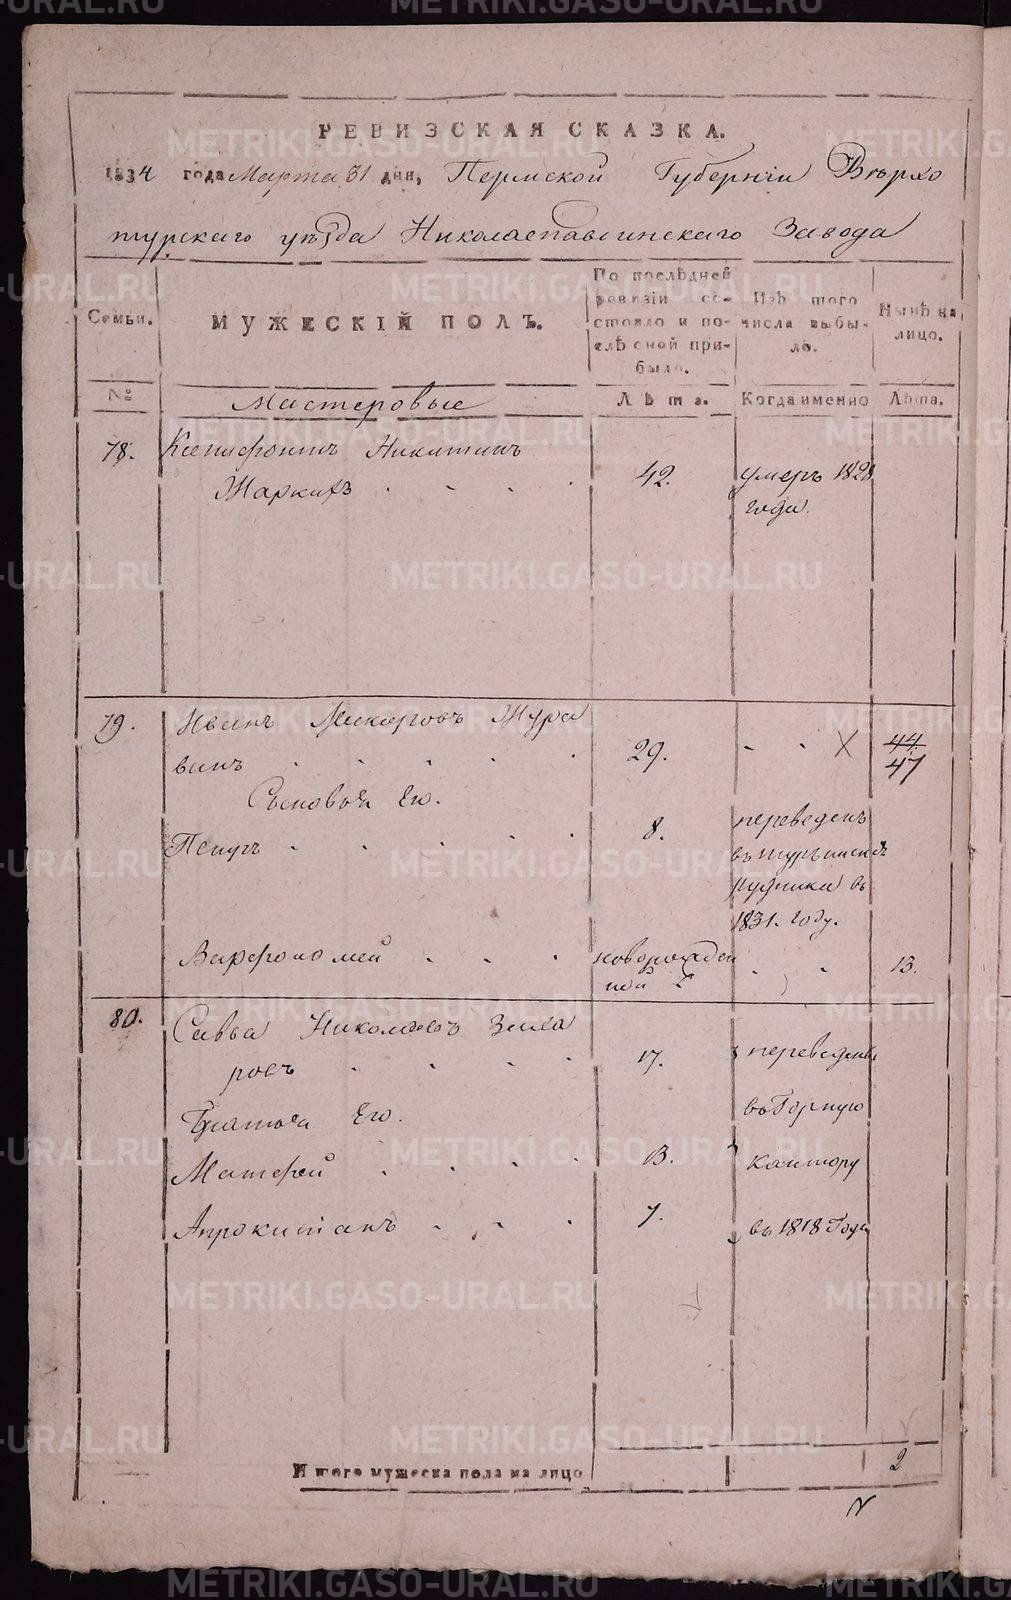 РЕВИЗСКАЯ СКАЗКА.
1834 года Марта 31 дня, Пермской Губерніи Верхо
турскаго уѣзда Николаепавдинскаго Завода
Семьи.
МУЖЕСКІЙ ПОЛЪ.
По послѣдней ревизіи состояло и послѣ оной прибыло.
Изъ того числа выбыло.
Нынѣ на лицо.
№
Мастеровые
Лѣта.
Когда имянно
Лѣта.
78. Ксенофонтъ Никитинъ
Жаркихъ 42. умеръ 1828
года.
79. Иванъ Макаровъ Жура
винъ 29. 44. 47
Сыновья Его.
Петръ 8. переведенъ
въ турьинскіе
рудники въ
1831. году.
Варфоломей новорожден
ной 13.
80. Савва Николаевъ Заха
ровъ 17. переведены
Братья Его. въ Горную
Матфей 13. Кантору
Апрокитанъ 7. въ 1818 Годе
Итого мужеска пола на лицо 2
METRIKI.GASO-URAL.RU